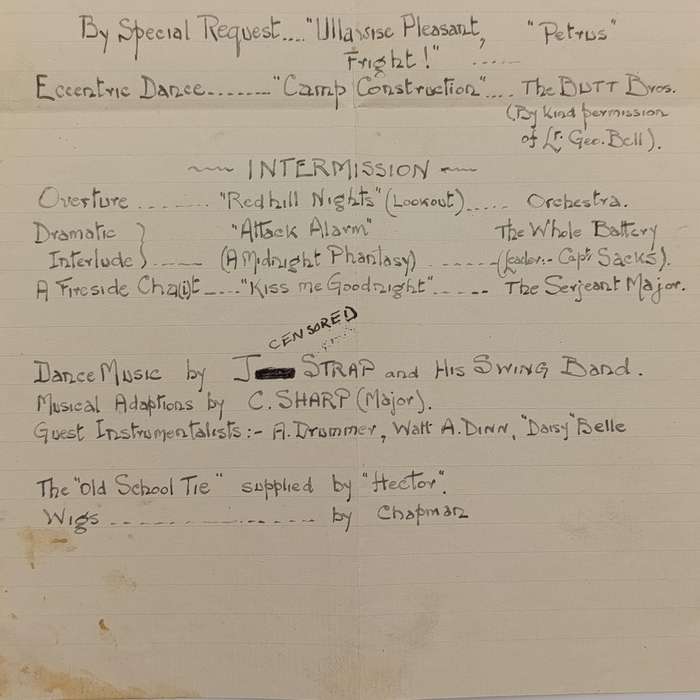 By Special Request...."Ullawise Pleasant, "Petrus"
Fright!" .....
Eccentric Dance........"Camp Construction".... The BUTT Bros.
(By Kind permission
of Lr. Geo. Bell).
~~~ INTERMISSION ~~~
Overture ........ "Redhill Nights" (Lookout)..... Orchestra.
Dramatic } "Attack Alarm" The Whole Battery
Interlude } ..... (A Midnight Phantasy) ...... (Leader:- Capt Sacks).
A Fireside Cha(i)t...."Kiss me Goodnight"..... The Serjeant Major.
CENSORED
Dance Music by J STRAP and His SWING Band.
Musical Adaptions by C. SHARP (Major).
Guest Instrumentalists:- A. Drummer, Watt A. DINN, "Daisy" Belle
The "Old School Tie" supplied by "Hector".
Wigs .................... by Chapman